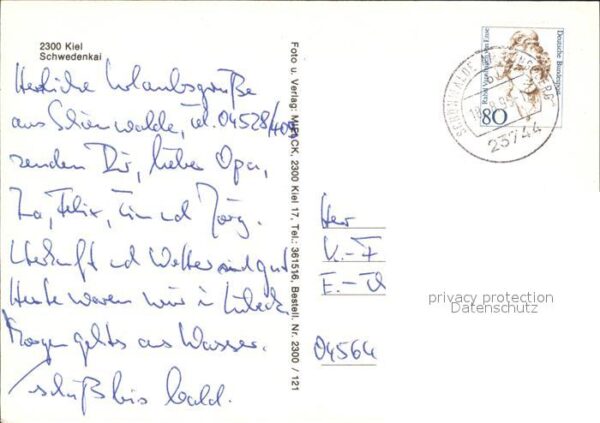 2300 Kiel
Schwedenkai
Herzliche Urlaubsgrüße
aus Schönwalde, Tel. 04528/409
senden Dir, lieber Opa,
Felix, Tim und Jörg.
Unterkunft und Wetter sind gut
Heute waren wir in Lübeck
Morgen gehts ans Wasser.
bis bald.
Foto u. Verlag: MIPACK, 2300 Kiel 17, Tel.: 361516, Bestell. Nr. 2300 / 121
Deutsche Bundespost
Rahel Varnhagen von Ense
80
23744
Herr
V.-F
04564
privacy protection
Datenschutz